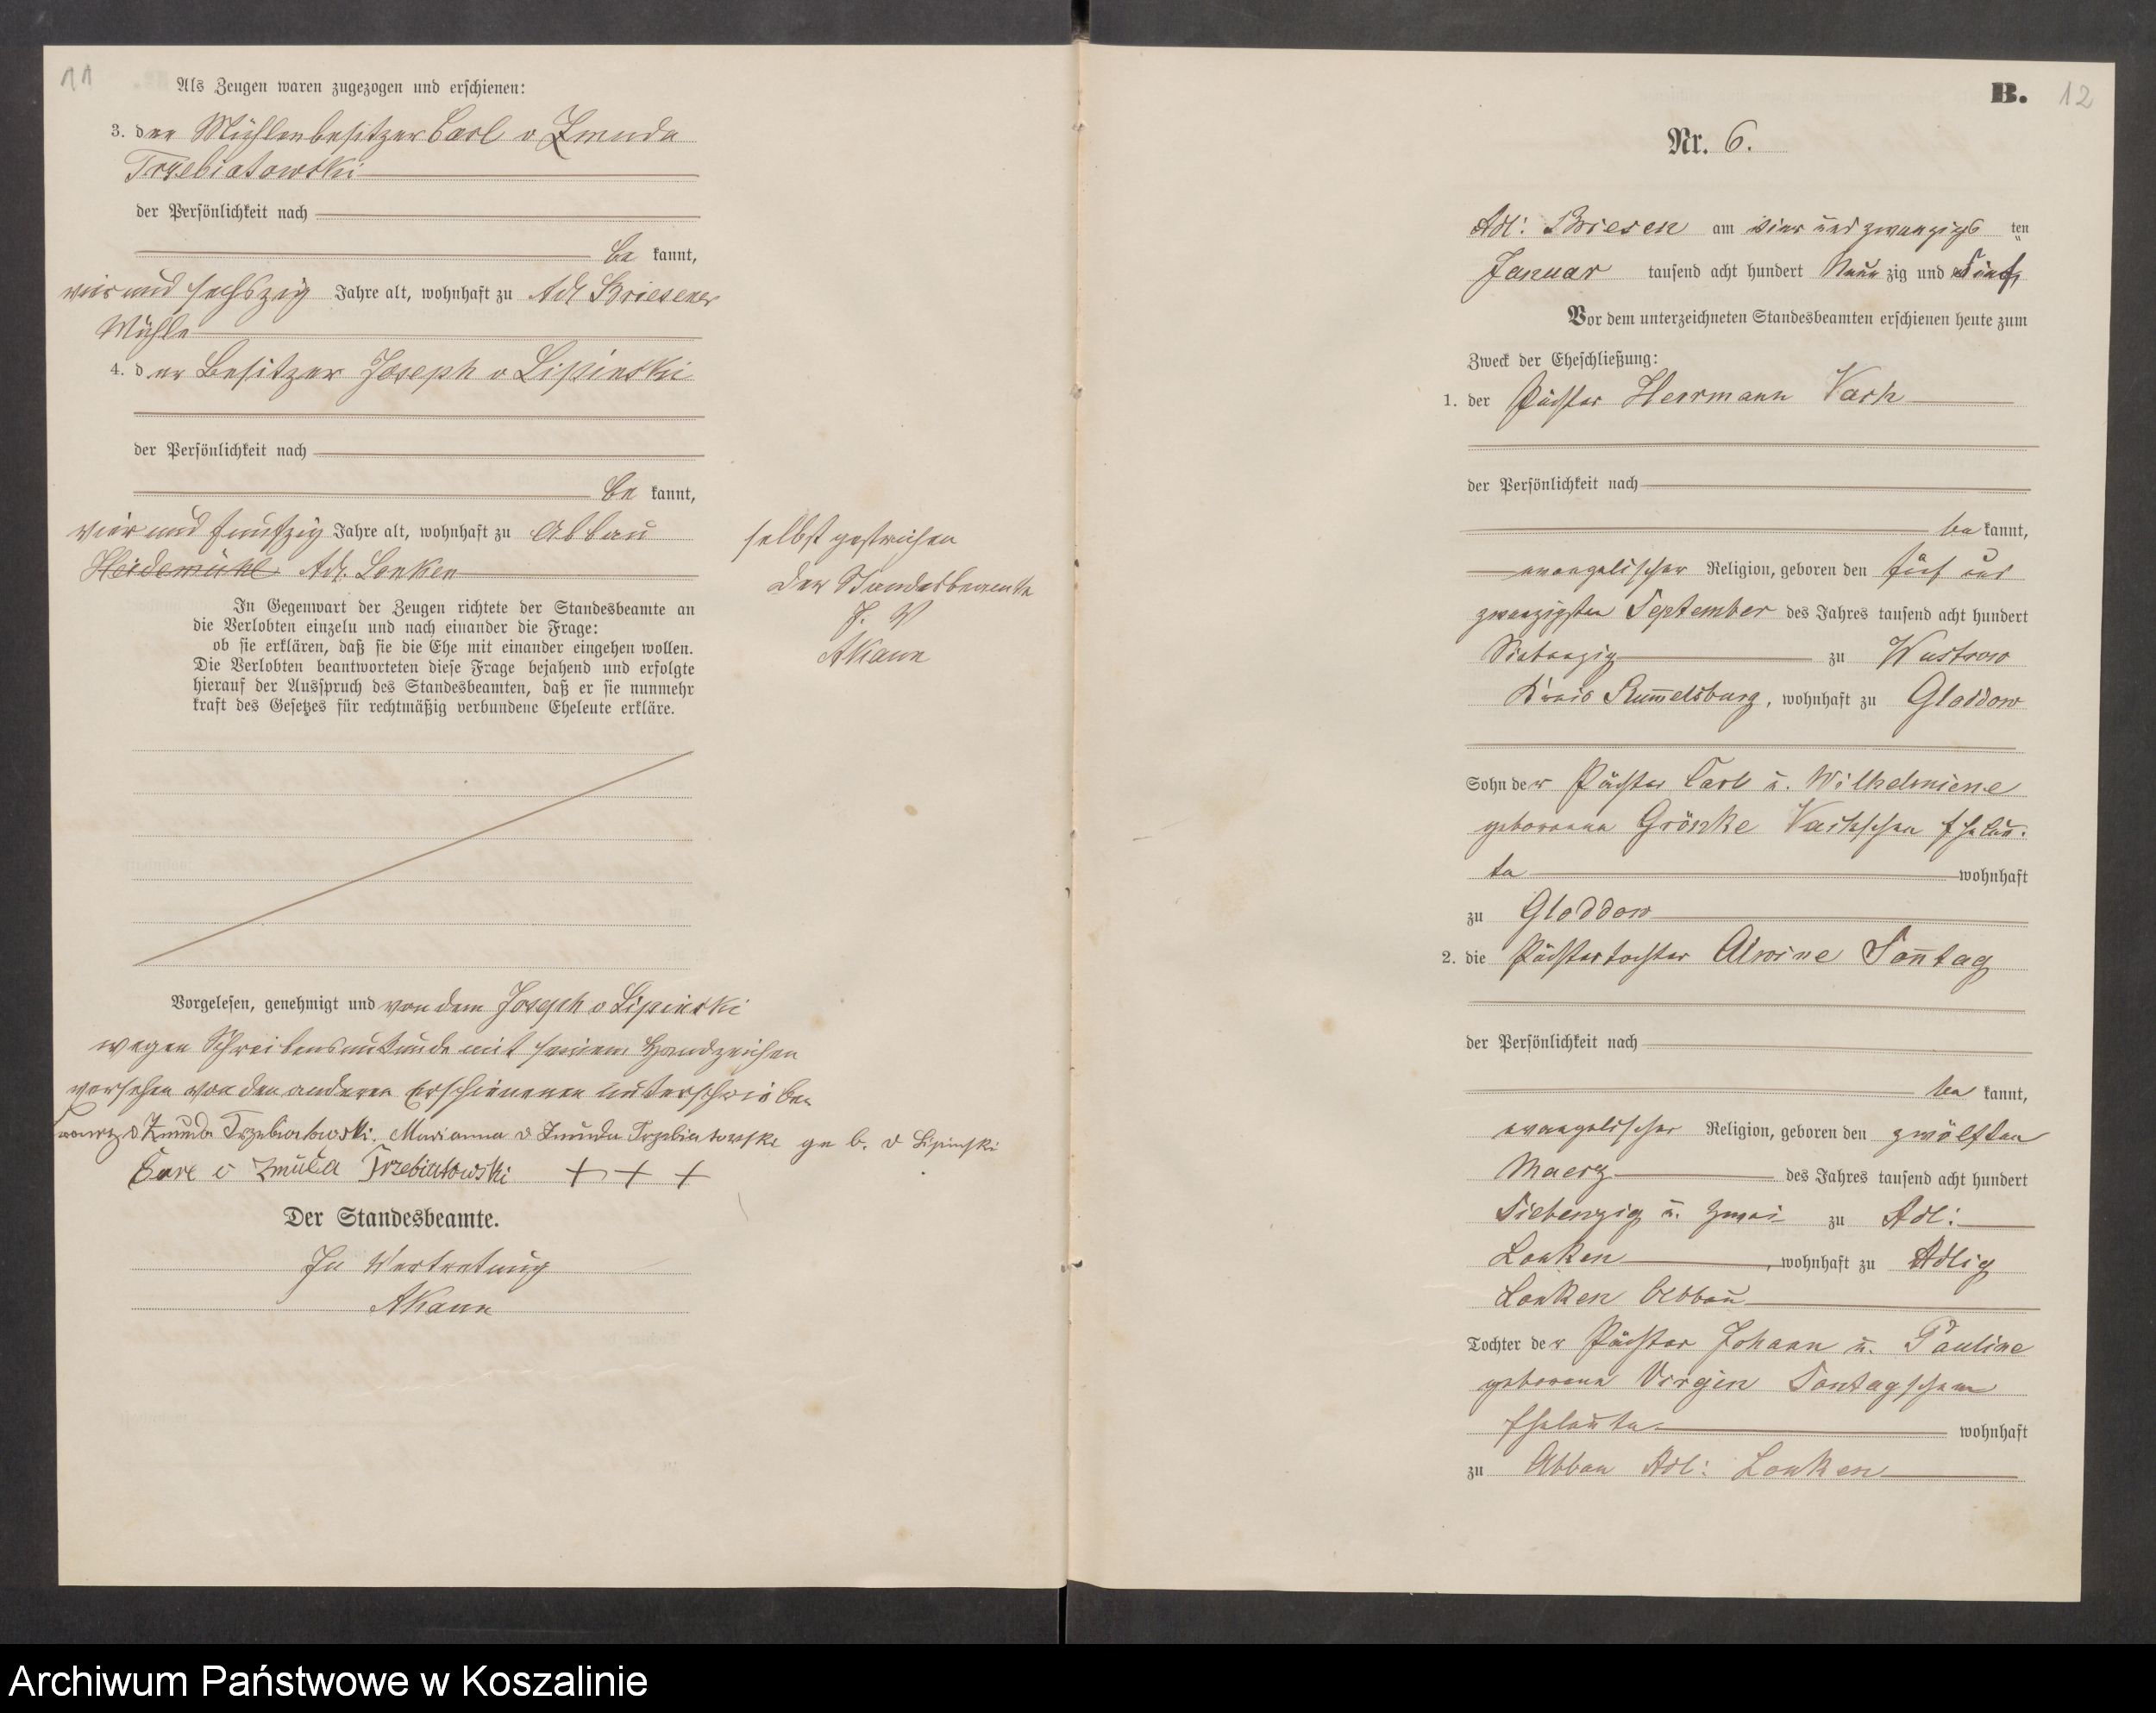 11
Als Zeugen waren zugezogen und erschienen:
3. der Mühlenbesitzer Carl v Zmuda
Trzebiatowski
der Persönlichkeit nach
be kannt,
vier und sechszig Jahre alt, wohnhaft zu Adl Briesener
Mühle
4. der Besitzer Joseph v Lipinski
der Persönlichkeit nach
be kannt,
vier und funfzig Jahre alt, wohnhaft zu Abbau
Heidemühl Adl. Lonken
selbst gestrichen
Der Standesbeamte
J. V
AKann
In Gegenwart der Zeugen richtete der Standesbeamte an
die Verlobten einzeln und nach einander die Frage:
ob sie erklären, daß sie die Ehe mit einander eingehen wollen.
Die Verlobten beantworteten diese Frage bejahend und erfolgte
hierauf der Ausspruch des Standesbeamten, daß er sie nunmehr
kraft des Gesetzes für rechtmäßig verbundene Eheleute erkläre.
Vorgelesen, genehmigt und von dem Joseph v Lipinski
wegen Schreibensunkunde mit seinem Handzeichen
versehen von den anderen Erschienenen unterschrieben
v Zmuda Trzebiatowski. Marianna v Zmuda Trzebiatowski geb. v Lipinski
Carl v Zmuda Trzebiatowski + + +
Der Standesbeamte.
In Vertretung
AKann
B. 12
Nr. 6.
Adl: Briesen am vier und zwanzigs ten
Januar tausend acht hundert Neun zig und Fünf
Vor dem unterzeichneten Standesbeamten erschienen heute zum
Zweck der Eheschließung:
1. der Pächter Herrmann Vach
der Persönlichkeit nach
be kannt,
evangelischer Religion, geboren den fünf und
zwanzigsten September des Jahres tausend acht hundert
Siebenzig zu Wustrow
Kreis Rummelsburg, wohnhaft zu Gloddow
Sohn der Pächter Carl u. Wilhelmiene
geborenen Grönke Vachschen Eheleu-
te wohnhaft
zu Gloddow
2. die Pächtertochter Alwine Sonntag
der Persönlichkeit nach
be kannt,
evangelischer Religion, geboren den zwölften
Maerz des Jahres tausend acht hundert
Siebenzig u. zwei zu Adl:
Lonken, wohnhaft zu Adlig
Lonken Abbau
Tochter der Pächter Johann u. Pauline
geborene Virgin Sontagschen
Eheleute wohnhaft
zu Abbau Adl: Lonken
Archiwum Państwowe w Koszalinie